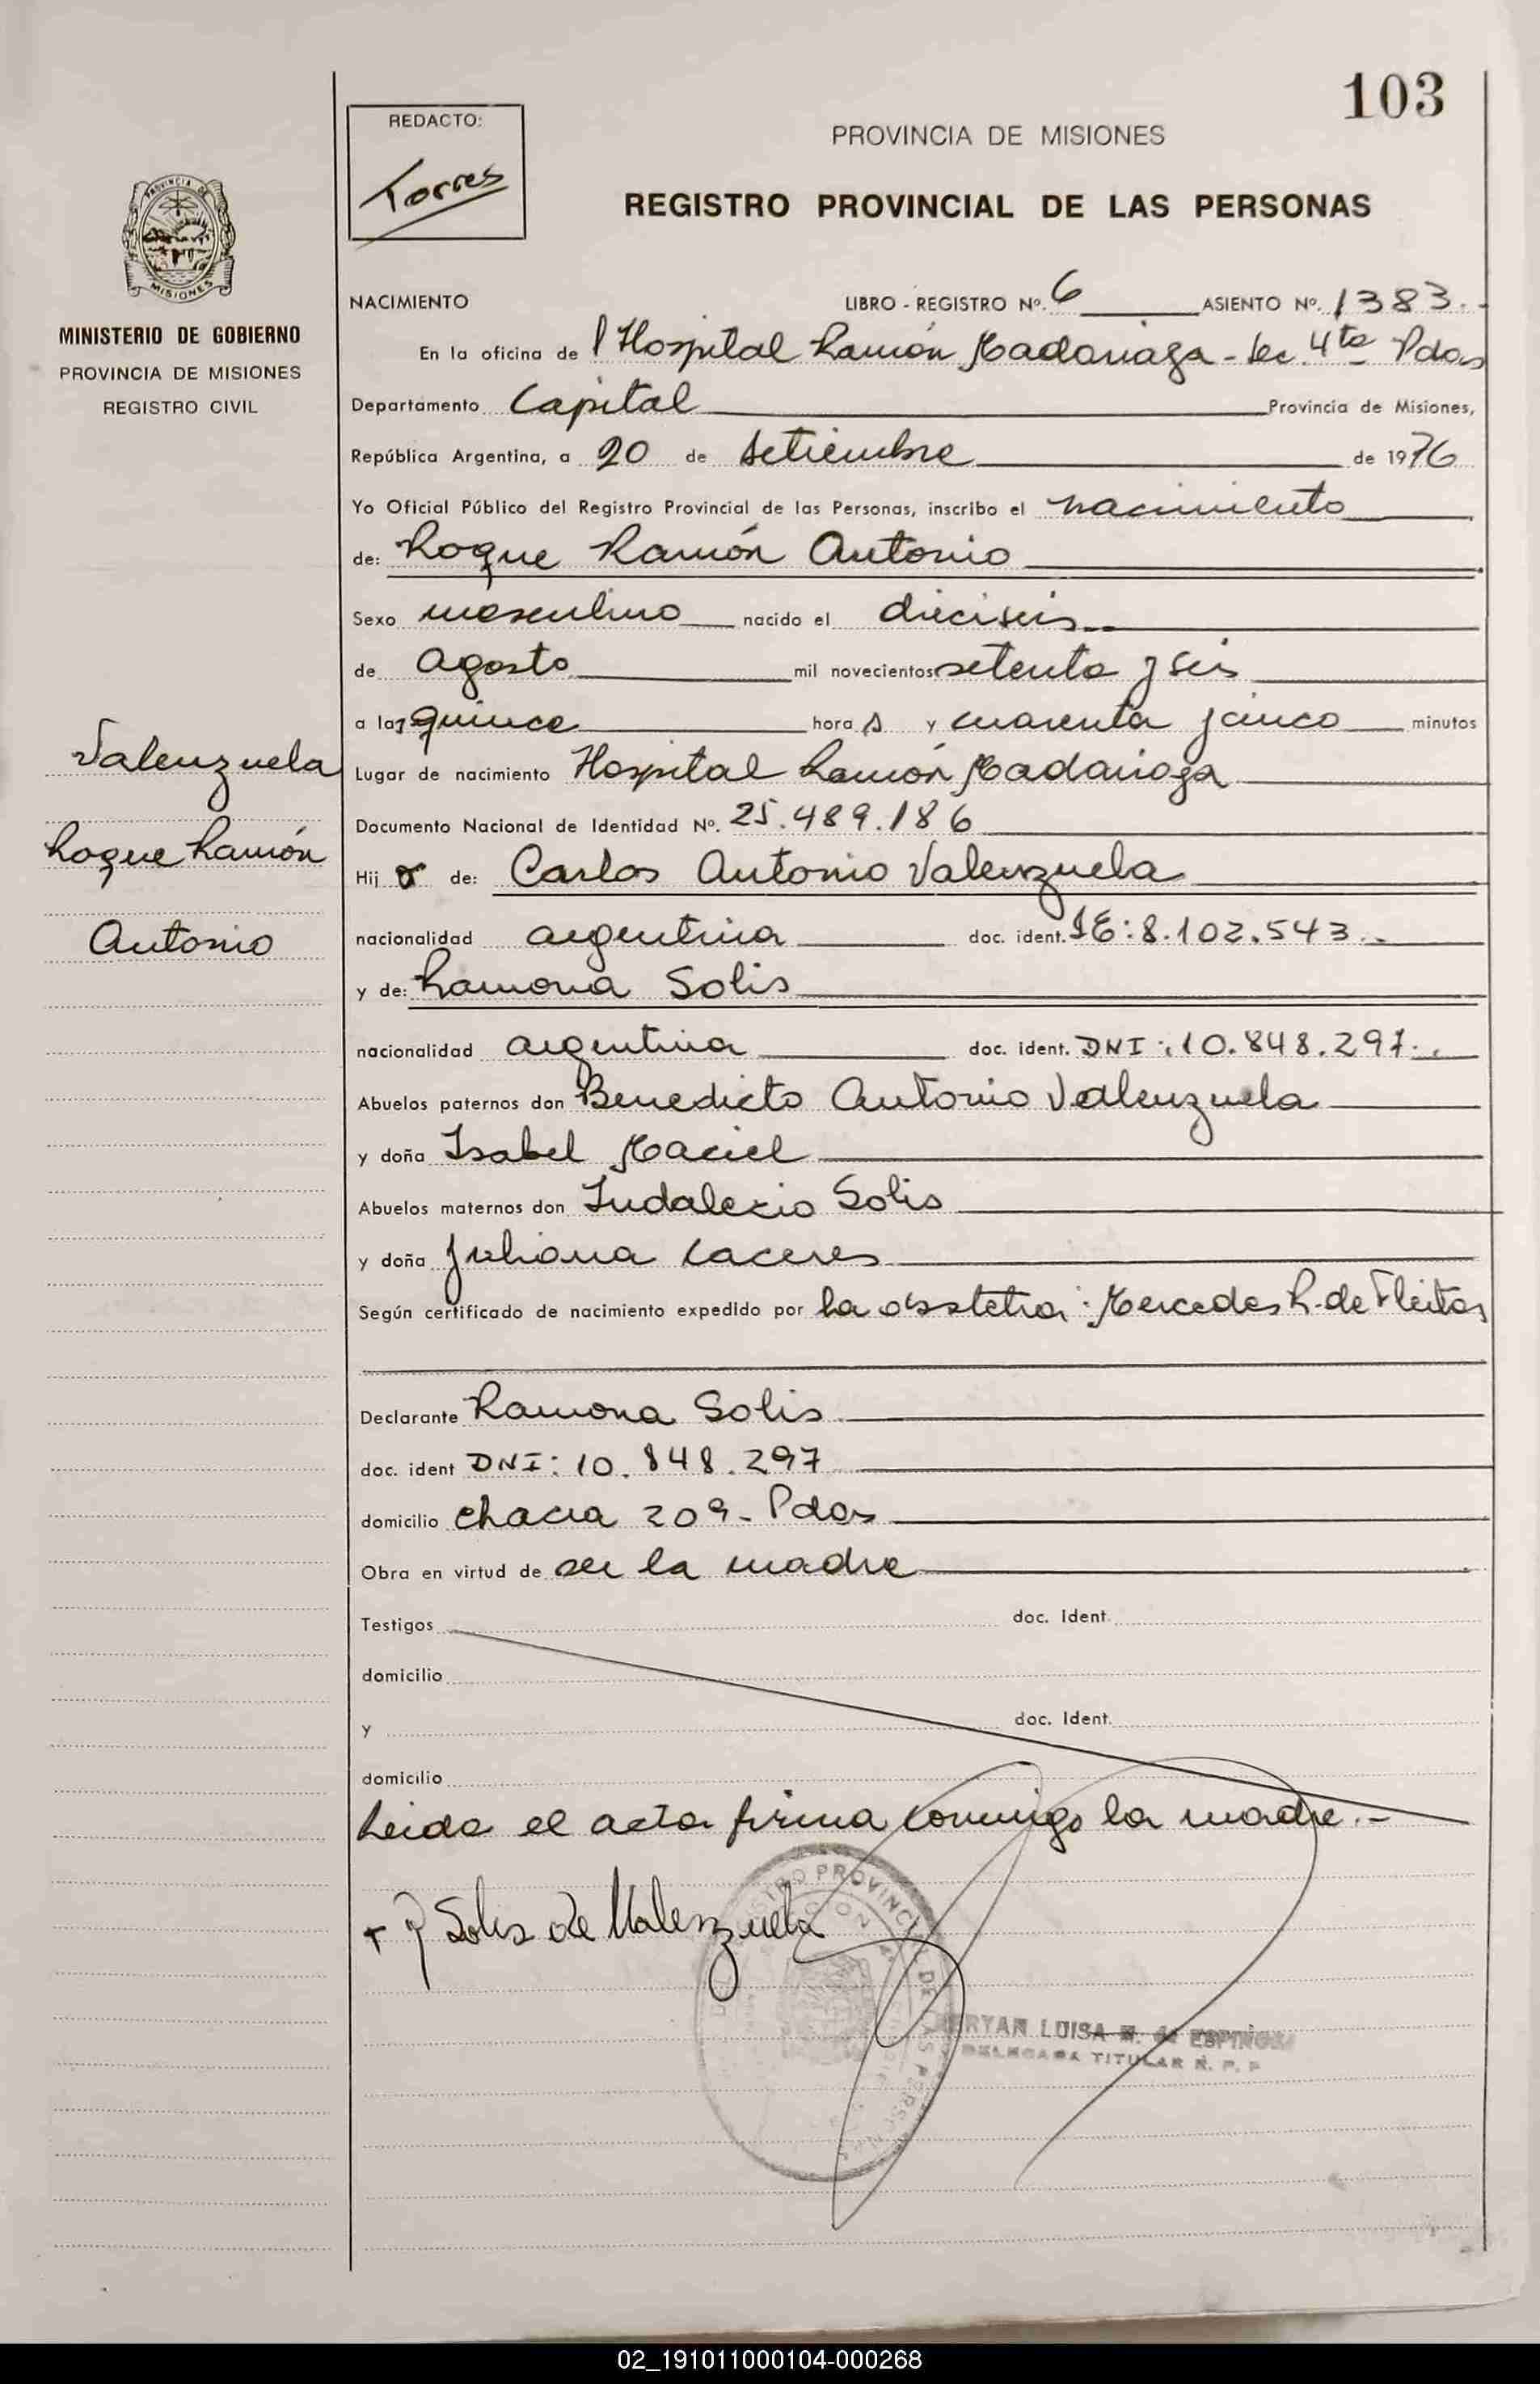 103
REDACTO:
Torres
PROVINCIA DE MISIONES
REGISTRO PROVINCIAL DE LAS PERSONAS
PROVINCIA DE
MISIONES
MINISTERIO DE GOBIERNO
PROVINCIA DE MISIONES
REGISTRO CIVIL
NACIMIENTO LIBRO - REGISTRO Nº. 6 ASIENTO Nº. 1383.-
En la oficina de l Hospital Ramón Madariaga - Sec 4ta Pdas
Departamento Capital Provincia de Misiones,
República Argentina, a 20 de setiembre de 1976
Yo Oficial Público del Registro Provincial de las Personas, inscribo el nacimiento
de: Roque Ramón Antonio
Sexo masculino nacido el dieciseis
de agosto mil novecientos setenta y seis
a las quince hora s y cuarenta y cinco minutos
Valenzuela
Roque Ramón
Antonio
Lugar de nacimiento Hospital Ramón Madariaga
Documento Nacional de Identidad Nº. 25.489.186
Hij o de: Carlos Antonio Valenzuela
nacionalidad argentina doc. ident. LE: 8.102.543.-
y de: Ramona Solis
nacionalidad argentina doc. ident. DNI: 10.848.297.-
Abuelos paternos don Benedicto Antonio Valenzuela
y doña Isabel Maciel
Abuelos maternos don Indalecio Solis
y doña Juliana Caceres
Según certificado de nacimiento expedido por la obstetra: Mercedes R. de Fleitas
Declarante Ramona Solis
doc. ident DNI: 10.848.297
domicilio chacra 209 - Pdas
Obra en virtud de ser la madre
Testigos doc. Ident.
domicilio
y doc. Ident.
domicilio
Leida el acta firma conmigo la madre.-
+ R Solis de Valenzuela
REGISTRO PROVINCIAL DE LAS PERSONAS
LUISA M. de ESPINOSA
DELEGADA TITULAR R. P. P
02_191011000104-000268